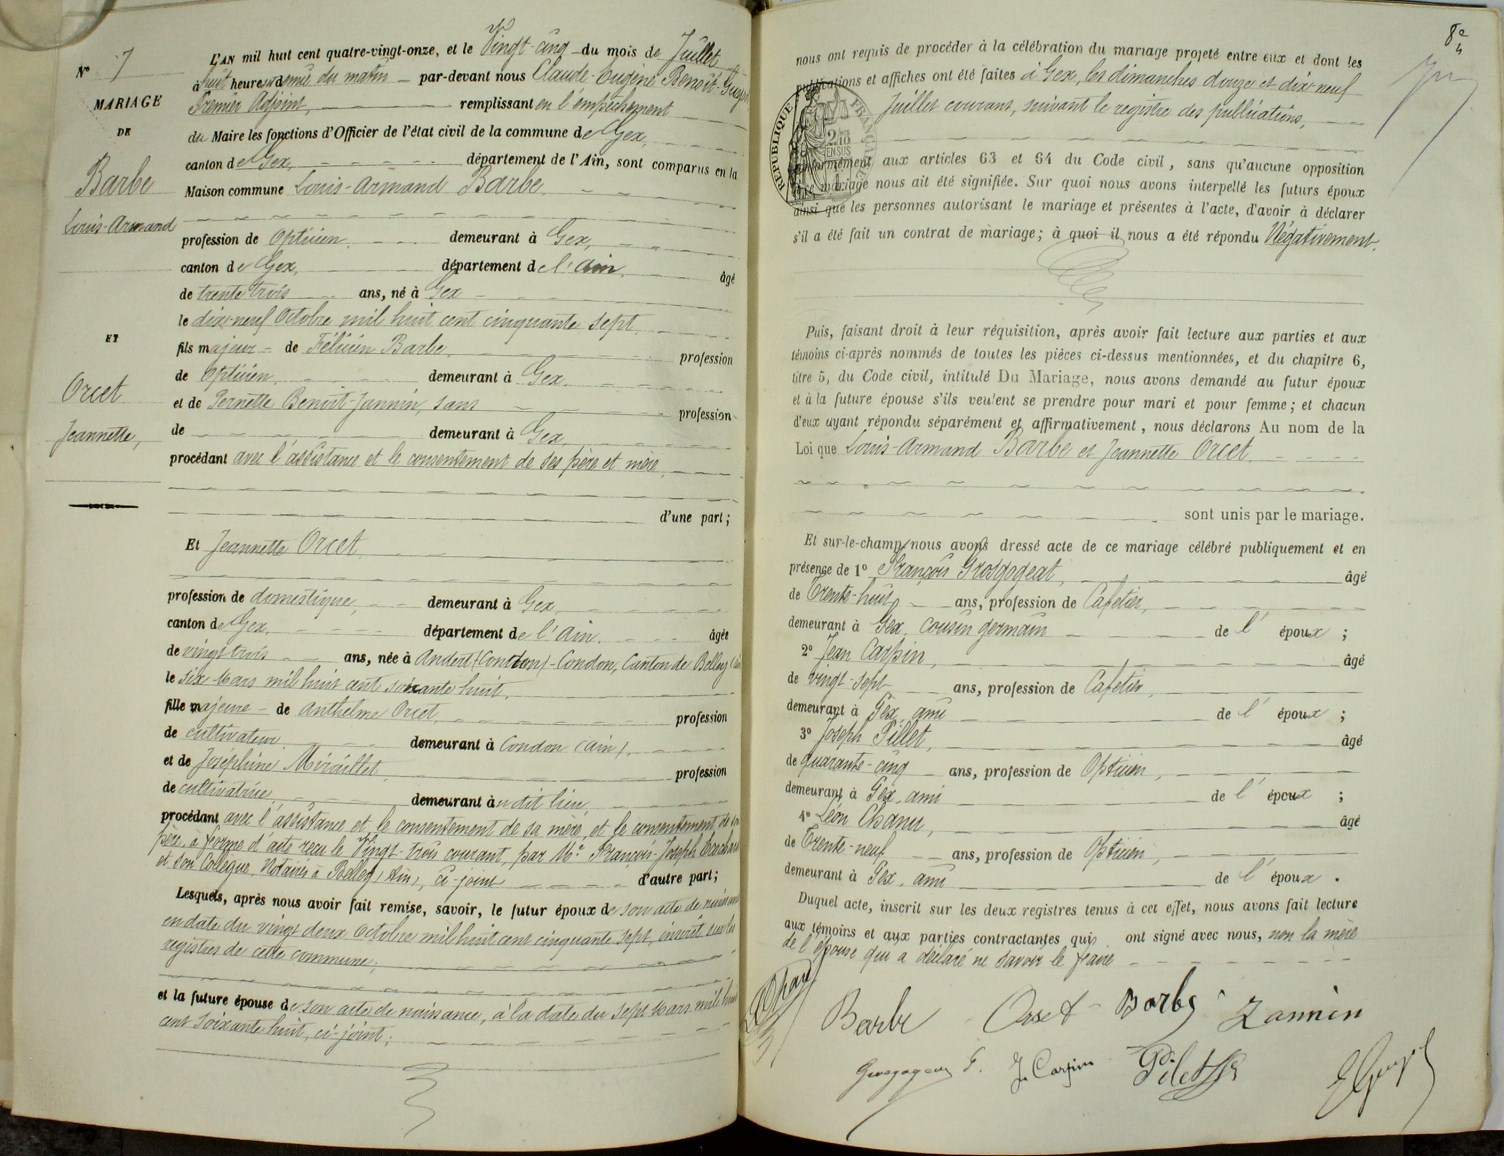 N° 7
MARIAGE
DE
Barbe
Louis-Armand
ET
Orcet
Jeannette,
L'AN mil huit cent quatre-vingt-onze, et le Vingt-cinq du mois de Juillet
à huit heures demie du matin par-devant nous Claude-Eugène Benoît-Guyot
Premier Adjoint, remplissant en l'empêchement
du Maire les fonctions d'Officier de l'état civil de la commune de Gex,
canton de Gex, département de l'Ain, sont comparus en la
Maison commune Louis-Armand Barbe
profession de Opticien demeurant à Gex,
canton de Gex, département de l'Ain âgé
de trente trois ans, né à Gex
le dix-neuf Octobre mil huit cent cinquante sept
fils majeur de Félicien Barbe profession
de Opticien demeurant à Gex
et de Pernette Benoît-Jannin, sans profession
de demeurant à Gex
procédant avec l'assistance et le consentement de ses père et mère
d'une part;
Et Jeannette Orcet
profession de domestique, demeurant à Gex
canton de Gex département de l'Ain. âgée
de vingt trois ans, née à Andert (Condon)-Condon, Canton de Belley (Ain
le six Mars mil huit cent soixante huit.
fille majeure de Anthelme Orcet profession
de cultivateur demeurant à Condon (Ain),
et de Joséphine Miraillet profession
de cultivatrice demeurant au dit lieu
procédant avec l'assistance et le consentement de sa mère, et le consentement de son
père, à forme d'acte reçu le Vingt-trois courant, par Me François-Joseph
et son Collègue, Notaires à Belley (Ain), ci-joint d'autre part;
Lesquels, après nous avoir fait remise, savoir, le futur époux de son acte de naissance
en date du vingt deux Octobre mil huit cent cinquante sept, inscrit sur les
registres de cette commune;
et la future épouse de son acte de naissance, à la date du sept Mars mil huit
cent soixante huit, ci-joint;
8e
nous ont requis de procéder à la célébration du mariage projeté entre eux et dont les
publications et affiches ont été faites à Gex, les dimanches douze et dix neuf
Juillet courant, suivant le registre des publications,
RÉPUBLIQUE FRANÇAISE
conformément aux articles 63 et 64 du Code civil, sans qu'aucune opposition
au mariage nous ait été signifiée. Sur quoi nous avons interpellé les futurs époux
ainsi que les personnes autorisant le mariage et présentes à l'acte, d'avoir à déclarer
s'il a été fait un contrat de mariage; à quoi il nous a été répondu Négativement.
Puis, faisant droit à leur réquisition, après avoir fait lecture aux parties et aux
témoins ci-après nommés de toutes les pièces ci-dessus mentionnées, et du chapitre 6,
titre 5, du Code civil, intitulé Du Mariage, nous avons demandé au futur époux
et à la future épouse s'ils veulent se prendre pour mari et pour femme; et chacun
d'eux ayant répondu séparément et affirmativement, nous déclarons Au nom de la
Loi que Louis-Armand Barbe et Jeannette Orcet
sont unis par le mariage.
Et sur-le-champ nous avons dressé acte de ce mariage célébré publiquement et en
présence de 1° François Grosgogeat, âgé
de Trente-huit ans, profession de Cafetier,
demeurant à Gex, cousin germain de l'époux;
2° Jean Carpin, âgé
de vingt-sept ans, profession de Cafetier,
demeurant à Gex, ami de l'époux;
3° Joseph Pillet, âgé
de quarante-cinq ans, profession de Opticien,
demeurant à Gex, ami de l'époux;
4° Léon Chanu, âgé
de Trente-neuf ans, profession de Opticien,
demeurant à Gex, ami de l'époux.
Duquel acte, inscrit sur les deux registres tenus à cet effet, nous avons fait lecture
aux témoins et aux parties contractantes qui ont signé avec nous, non la mère
de l'épouse qui a déclaré ne savoir le faire
Barbe Orset Barbe Zannin
Grosgogeat F. J. Carpin Pilet